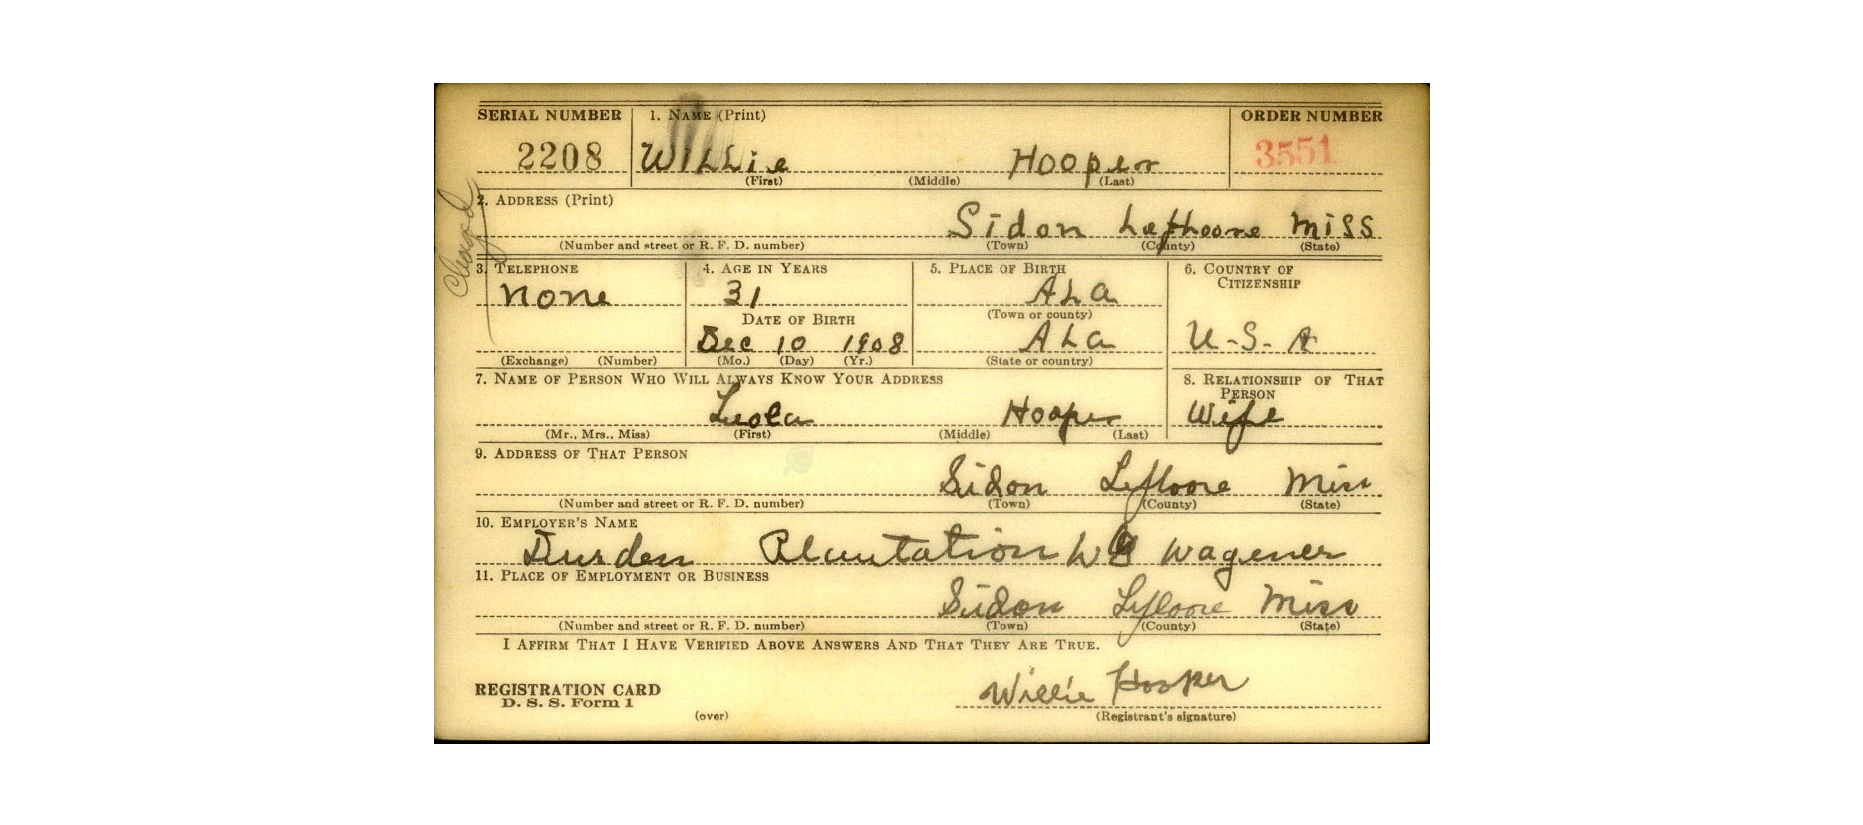 SERIAL NUMBER 1. NAME (Print) ORDER NUMBER
2208 Willie Hooper 3551
(First) (Middle) (Last)
2. ADDRESS (Print)
Sidon Lefhoore Miss
(Number and street or R. F. D. number) (Town) (County) (State)
3. TELEPHONE 4. AGE IN YEARS 5. PLACE OF BIRTH 6. COUNTRY OF CITIZENSHIP
none 31 ALa
(Town or county)
DATE OF BIRTH
Dec 10 1908 ALa U-S-A
(Exchange) (Number) (Mo.) (Day) (Yr.) (State or country)
7. NAME OF PERSON WHO WILL ALWAYS KNOW YOUR ADDRESS 8. RELATIONSHIP OF THAT PERSON
Leola Hooper Wife
(Mr., Mrs., Miss) (First) (Middle) (Last)
9. ADDRESS OF THAT PERSON
Sidon Lefloore Miss
(Number and street or R. F. D. number) (Town) (County) (State)
10. EMPLOYER'S NAME
Durden Plantation W Wagener
11. PLACE OF EMPLOYMENT OR BUSINESS
Sidon Lefloore Miss
(Number and street or R. F. D. number) (Town) (County) (State)
I AFFIRM THAT I HAVE VERIFIED ABOVE ANSWERS AND THAT THEY ARE TRUE.
REGISTRATION CARD Willie Hooper
D. S. S. Form 1
(over) (Registrant's signature)